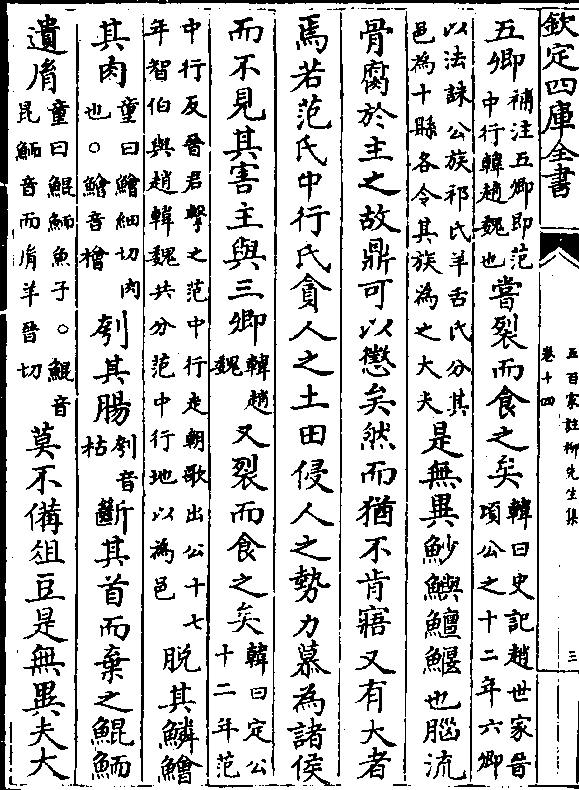 欽定四庫全書
五百家註柳先生集
卷十四 三
五卿補注五卿即范中行韓趙魏也嘗裂而食之矣韓曰史記趙世家晉頃公之十二年六卿
以法誅公族祁氏羊舌氏分其邑為十縣各令其族為之大夫是無異魦鱮鱣鰋也腦流
骨腐於主之故鼎可以懲矣然而猶不肯寤又有大者
焉若范氏中行氏貪人之土田侵人之勢力慕為諸侯
而不見其害主與三卿韓趙魏又裂而食之矣韓曰定公十二年范
中行反晉君擊之范中行走朝歌出公十七年智伯與趙韓魏共分范中行地以為邑脫其鱗鱠
其肉童曰鱠細切肉也○鱠音檜刳其腸刳音枯斷其首而棄之鯤鮞
遺胤童曰鯤鮞魚子○鯤音昆鮞音而胤羊晉切莫不備俎豆是無異夫大